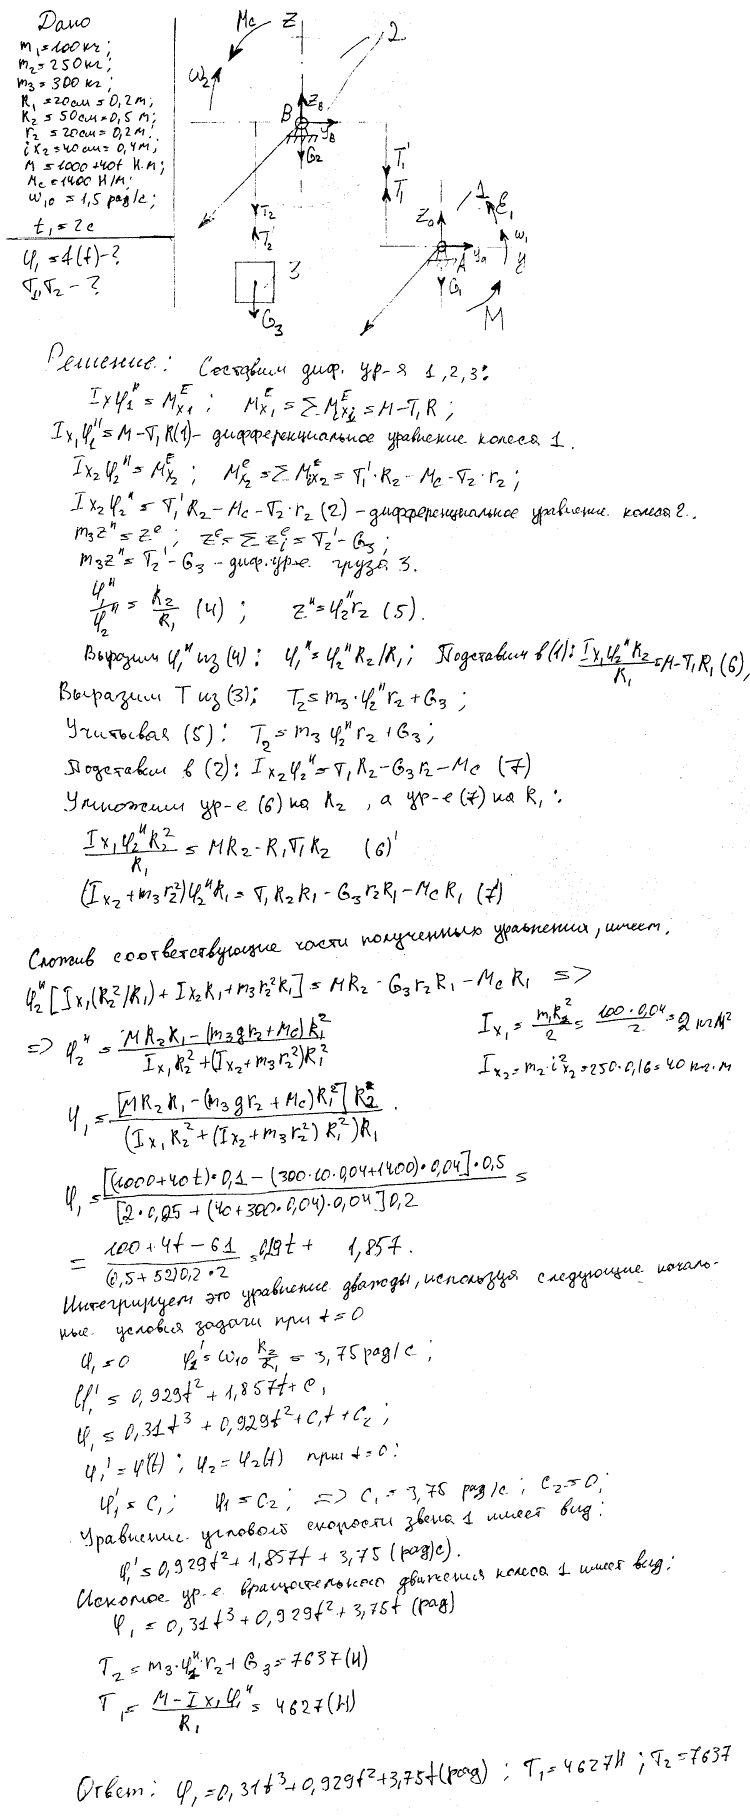 Дано
m₁=100кг;
m₂=250кг;
m₃=300кг;
R₁=20см=0,2м;
R₂=50см=0,5м;
r₂=20см=0,2м;
ix₂=40см=0,4м;
M=1000+40t Н.м;
Mc=1400 Н/м;
ω₁₀=1,5 рад/с;
t₁=2c
φ₁=f(t)-?
T₁,T₂-?
Mc Z 2
ω₂
B Z_B y_B
G₂
T₁'
T₁
T₂
T₂'
3
G₃
1 ε₁
Z_a ω₁
A y_a φ
G₁
M
Решение: Составим диф. ур-я 1,2,3:
Ixφ₁"=Mx₁ᴱ; Mx₁ᴱ=ΣMixᵢᴱ=M-T₁R;
Ix₁φ₂"=M-T₁R(1)- дифференциальное уравнение колеса 1.
Ix₂φ₂"=Mx₂ᴱ; Mx₂ᵉ=ΣMix₂ᴱ=T₁'·R₂-Mc-T₂·r₂;
Ix₂φ₂"=T₁'R₂-Mc-T₂·r₂ (2) -дифференциальное уравнение колеса 2.
m₃z"=zᵉ; zᵉ=Σzᵢᵉ=T₂'-G₃;
m₃z"=T₂'-G₃ -диф.ур-е груза 3.
φ₁"/φ₂"=R₂/R₁ (4); z"=φ₂"r₂ (5).
Выразим φ₁" из (4): φ₁"=φ₂"R₂/R₁; Подставим в (1): Ix₁φ₂"R₂/R₁=M-T₁R₁ (6),
Выразим T из (3): T₂=m₃·φ₂"r₂+G₃;
Учитывая (5): T₂=m₃φ₂"r₂+G₃;
Подставим в (2): Ix₂φ₂"=T₁R₂-G₃r₂-Mc (7)
Умножим ур-е (6) на R₂, а ур-е (7) на R₁:
Ix₁φ₂"R₂²/R₁=MR₂-R₁T₁R₂ (6)'
(Ix₂+m₃r₂²)φ₂"R₁=T₁R₂R₁-G₃r₂R₁-McR₁ (7')
Сложив соответствующие части полученных уравнения, имеем.
φ₂"[Ix₁(R₂²/R₁)+Ix₂R₁+m₃r₂²R₁]=MR₂-G₃r₂R₁-McR₁ =>
=> φ₂"=MR₂R₁-(m₃gr₂+Mc)R₁²/Ix₁R₂²+(Ix₂+m₃r₂²)R₁²
Ix₁=m₁R₂²/2=100·0,04/2=2 кгм²
Ix₂=m₂·i²x₂=250·0,16=40 кг·м
φ₁=[MR₂R₁-(m₃gr₂+Mc)R₁²]R₂²/(Ix₁R₂²+(Ix₂+m₃r₂²)R₁²)R₁.
φ₁=[(1000+40t)·0,1-(300·10·0,04+1400)·0,04]·0,5/[2·0,25+(40+300·0,04)·0,04]0,2=
=100+4t-61/(0,5+52)0,2·2=0,19t+ 1,857.
Интегрируем это уравнение дважды, используя следующие началь-
ные условия задачи при t=0
φ₁=0 φ₁'=ω₁₀R₂/R₁=3,75рад/с;
φ₁'=0,929t²+1,857t+C₁
φ₁=0,31t³+0,929t²+C₁t+C₂;
φ₁'=φ'(t); φ₂=φ₂(t) при t=0:
φ₁'=C₁; φ₁=C₂; => C₁=3,75 рад/с; C₂=0;
Уравнение угловой скорости звена 1 имеет вид:
φ₁'=0,929t²+1,857t+3,75(рад/с).
Искомое ур-е вращательного движения колеса 1 имеет вид:
φ₁=0,31t³+0,929t²+3,75t(рад)
T₂=m₃·φ₂"·r₂+G₃=7637(Н)
T₁=M-Ix₁φ₁"/R₁=4627(Н)
Ответ: φ₁=0,31t³+0,929t²+3,75t(рад); T₁=4627Н; T₂=7637